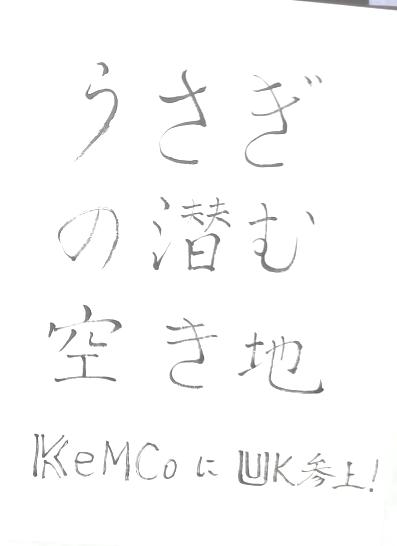 うさぎ
の潜む
空き地
KeMCoにUK参上!